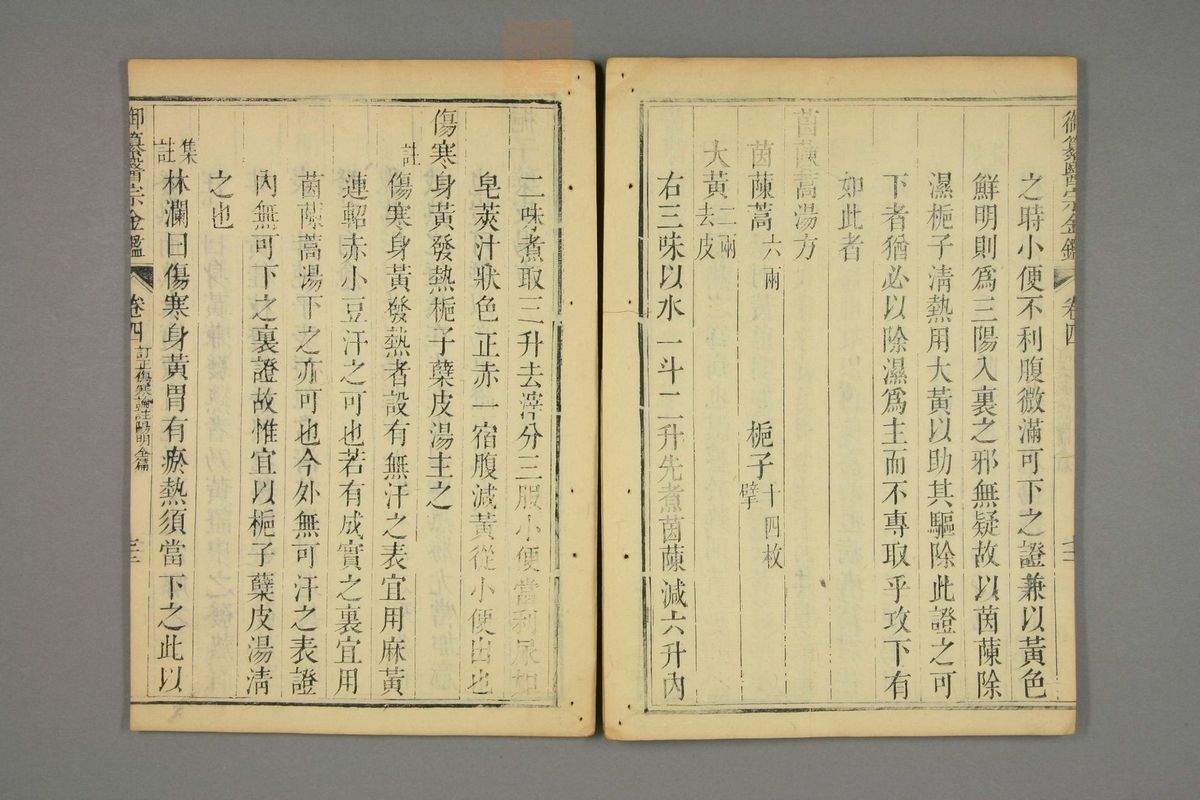 御纂醫宗金鑑
卷四
之時小便不利腹微滿可下之證兼以黃色
鮮明則爲三陽入裏之邪無疑故以茵蔯除
濕梔子清熱用大黃以助其驅除此證之可
下者猶必以除濕爲主而不專取乎攻下有
如此者
茵蔯蒿湯方
茵蔯蒿六兩 梔子十四枚擘
大黃二兩去皮
右三味以水一斗二升先煮茵蔯減六升內
二味煮取三升去滓分三服小便當利尿如
皂莢汁狀色正赤一宿腹減黃從小便出也
傷寒身黃發熱梔子蘖皮湯主之
註
傷寒身黃發熱者設有無汗之表宜用麻黃
連軺赤小豆汗之可也若有成實之裏宜用
茵蔯蒿湯下之亦可也今外無可汗之表證
內無可下之裏證故惟宜以梔子蘖皮湯清
之也
集註
林瀾曰傷寒身黃胃有瘀熱須當下之此以
御纂醫宗金鑑
卷四
訂正傷寒論註陽明全篇